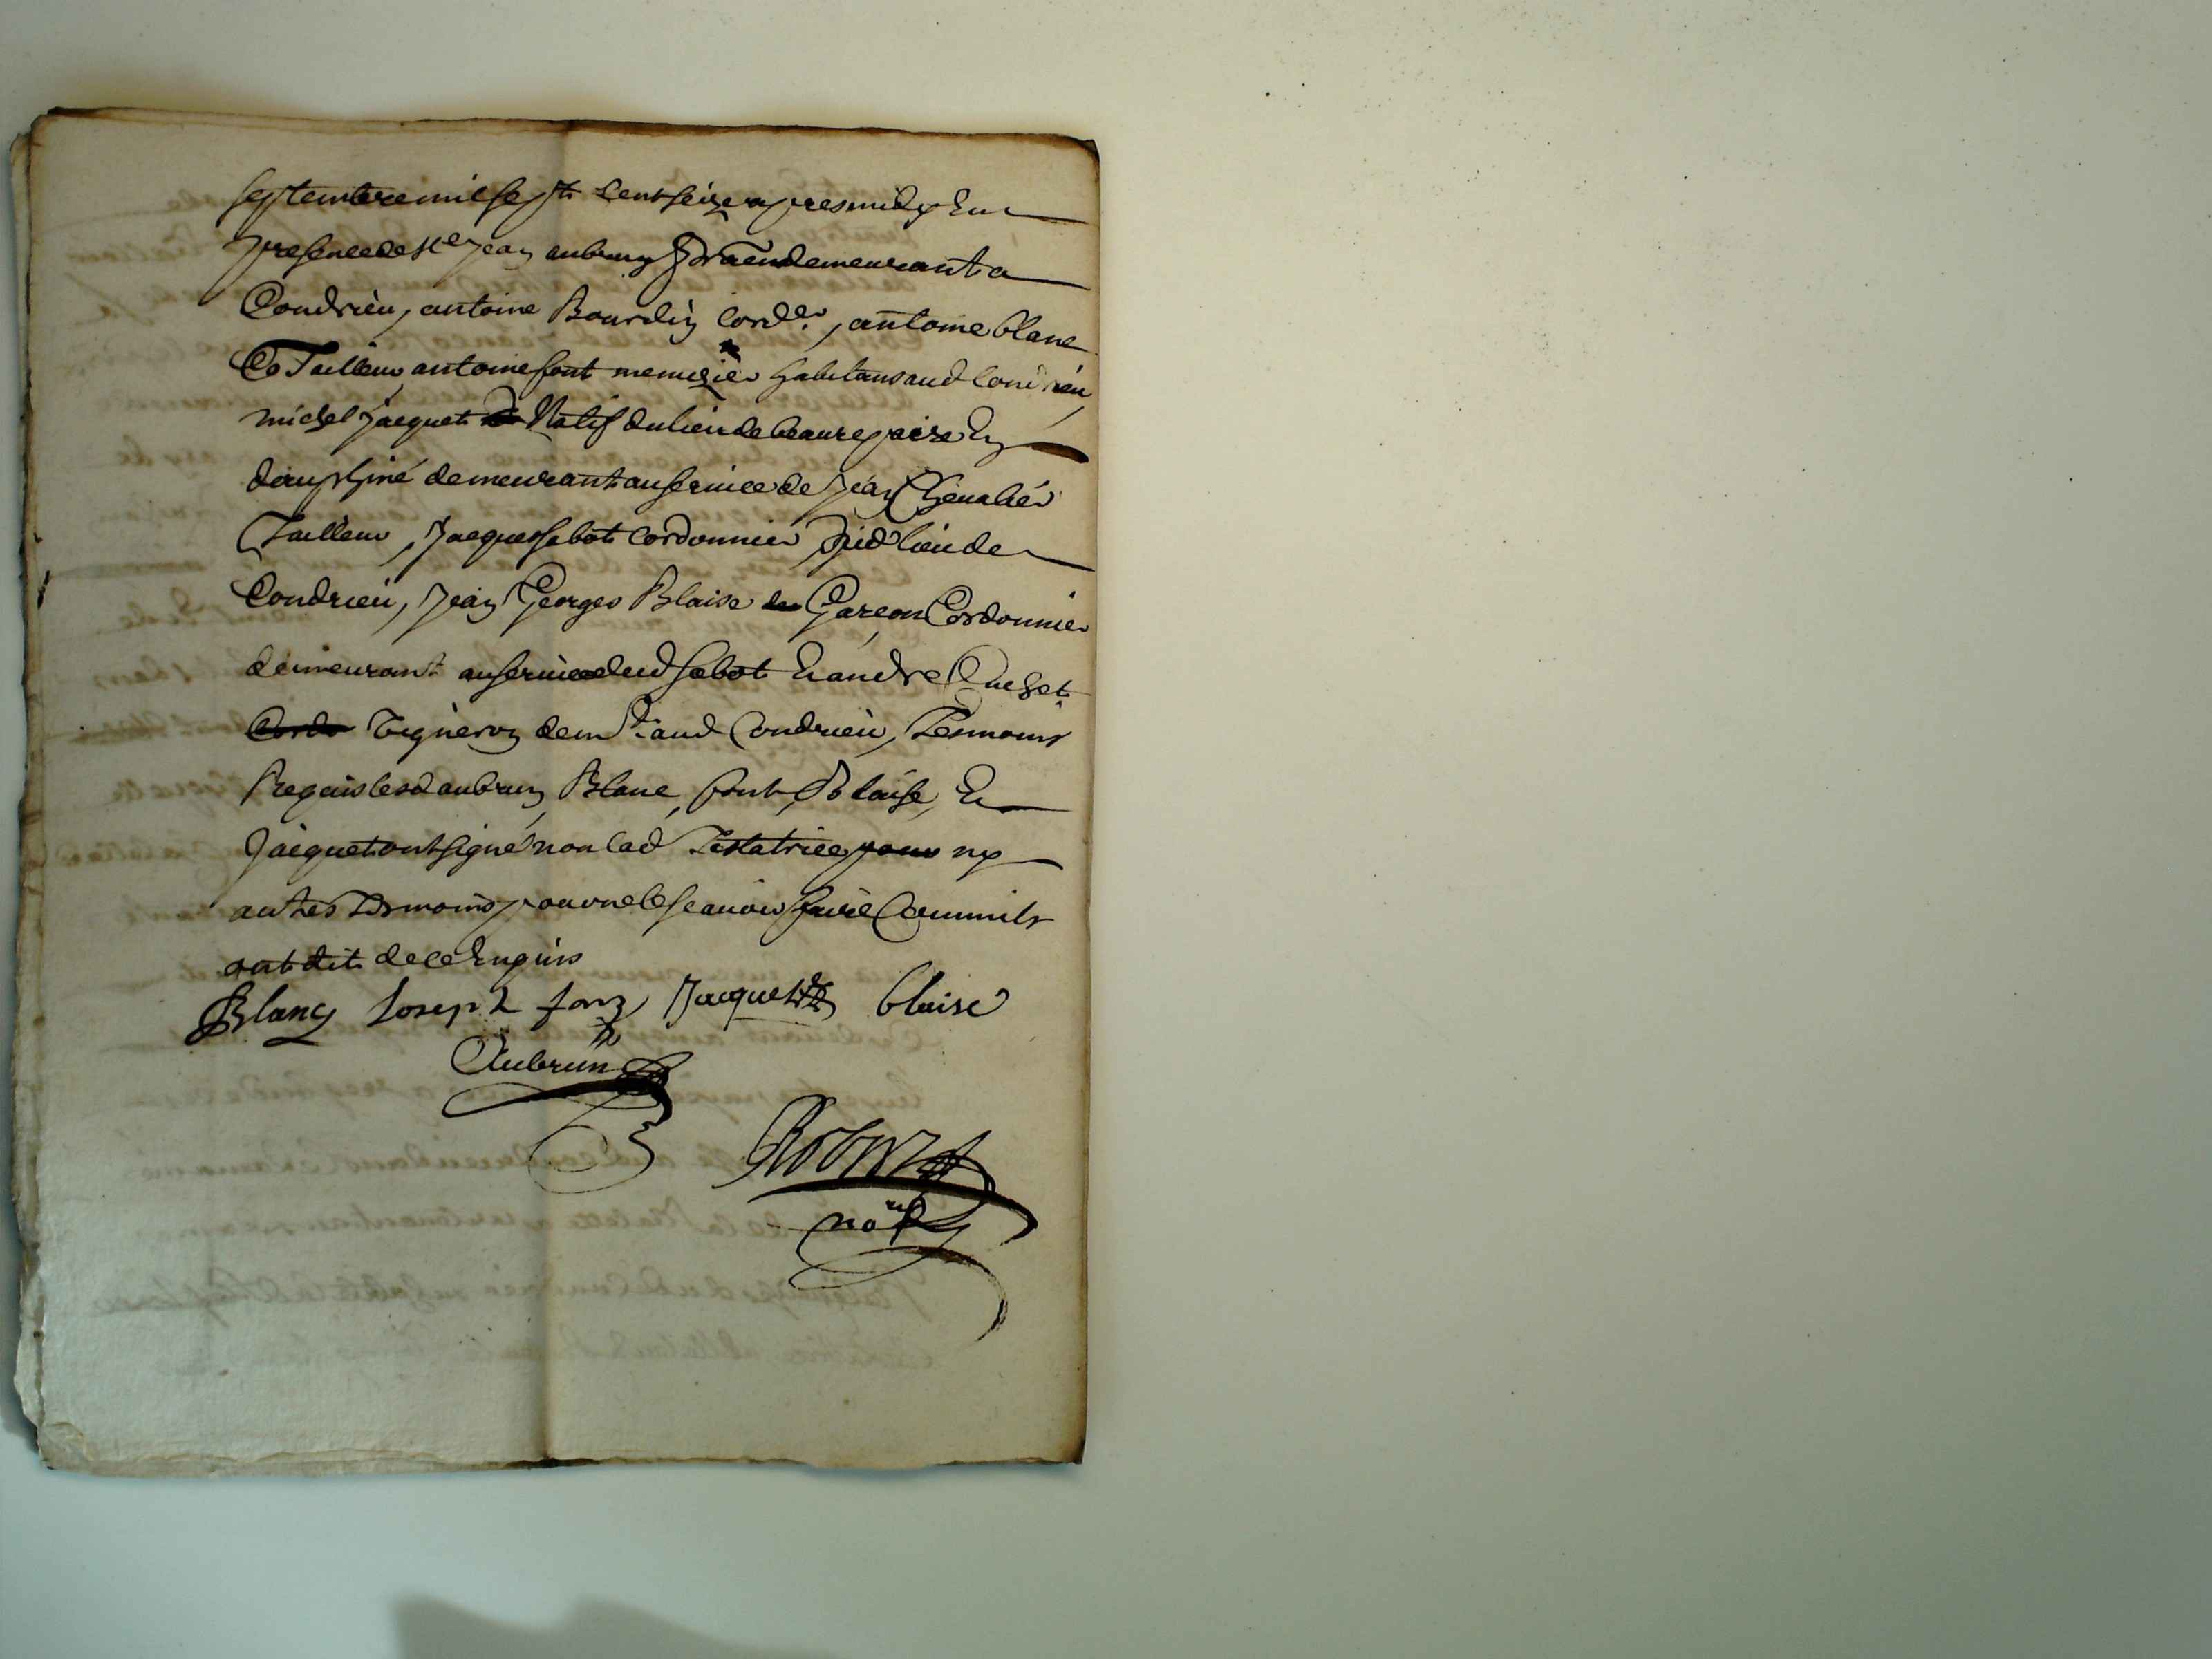 septembre mil sept cent seize apres midy En
presence de Me Jean aubrun demeurant a
Condrieu, antoine Bourdin Cordr, antoine blanc
Tailleur, antoine font menusier habitans aud Condrieu,
michel jacquet Natif du lieu de beaurepaire En
dauphiné demeurant au service de Jean Chevalier
Tailleur, Jacques sabot Cordonnier dud lieu de
Condrieu, Jean Georges Blaise Garcon Cordonnier
demeurant au service dud sabot Et andre
Cordo Vigneron demt aud Condrieu, Tesmoins
Requis lesd aubrun, Blanc, font, Blaise, Et
Jacquet ont signé non lad Testatrice pour ny
autres Tesmoins pour ne le scavoir faire Comm ils
ont dit de ce Enquis
Blanc Joseph fon Jacquet blaise
Aubrun
Robert
nore